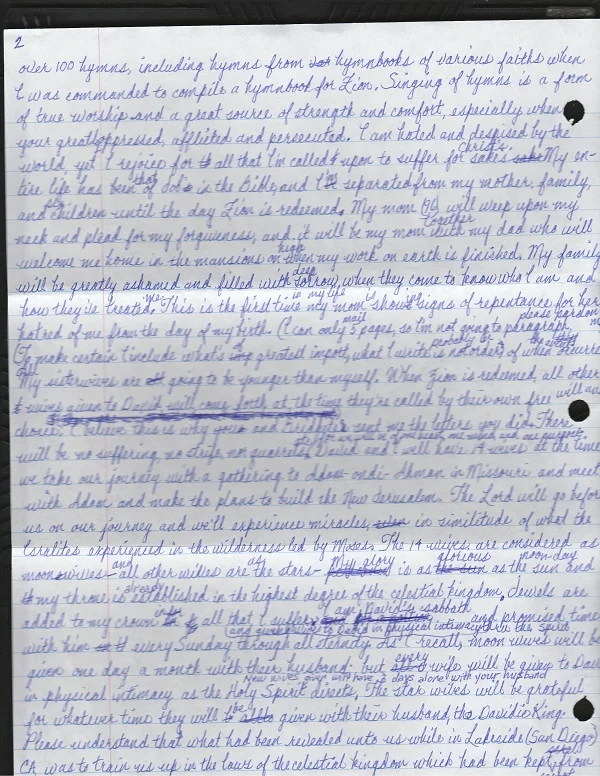 2
over 100 hymns, including hymns from hymnbooks of various faiths when
I was commanded to compile a hymnbook for Zion. Singing of hymns is a form
of true worship and a great source of strength and comfort, especially when
your greatly oppressed, afflicted and persecuted. I am hated and despised by the
world, yet I rejoice for all that I'm called upon to suffer for Christ's sake. My en-
tire life has been that of Job's in the Bible, and I'm separated from my mother, family,
and children until the day Zion is redeemed. My mom will weep upon my
neck and plead for my forgiveness, and it will be my mom together with my dad who will
welcome me home in the mansions on high when my work on earth is finished. My family
will be greatly ashamed and filled with deep sorrow, when they come to know who I am and
how they've treated me. This is the first time in my life my mom is showing signs of repentance for her
hatred of me from the day of my birth. (I can only mail 5 pages, so I'm not going to paragraph, please pardon
To make certain I include what's of greatest import, what I write is probably not in order of when it occurred.
My sisterwives are going to be younger than myself. When Zion is redeemed, all other
wives given to David will come forth at the time they're called by their own free will and
choice. I believe this is why you and Bridgette sent me the letters you did. There
will be no suffering, no strife, nor quarrels. David and I will have 14 wives at the time
we take our journey with a gathering to Adam-ondi-Ahman in Missouri and meet
with Adam and make the plans to build the New Jerusalem. The Lord will go before
us on our journey and we'll experience miracles, in similitude of what the
Israelites experienced in the wilderness led by Moses. The 14 wives are considered as
moon wives and all other wives are as the stars - My glory is as the glorious noon-day sun and
my throne is already established in the highest degree of the celestial kingdom, Jewels are
added to my crown in all that I suffer. I am David's sabbath and promised time
with him every Sunday through all eternity. As I recall, moon wives will be
given one day a month with their husband - but every wife will be given to David
in physical intimacy as the Holy Spirit directs. The star wives will be grateful
New wives given will have days alone with your husband
for whatever time they will be given with their husband, the Davidic King.
Please understand that what had been revealed unto us while in Lakeside (San Diego)
CA was to train us up in the laws of the celestial kingdom which had been kept from